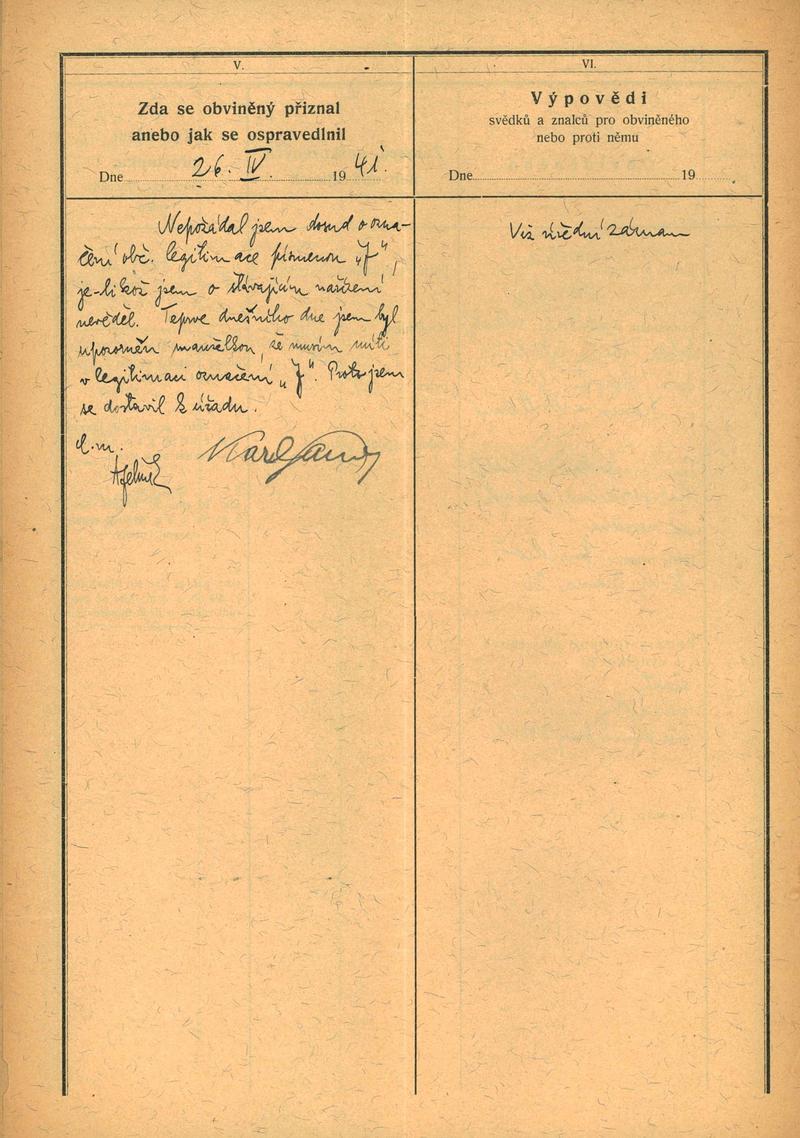 V.
Zda se obviněný přiznal
anebo jak se ospravedlnil
Dne 26. IV. 1941.
Nepožádal jsem dosud o ozna-
čení obč. legitimace písmenou „J“,
je-likož jsem o stávajícím nařízení
nevěděl. Teprve dnešního dne jsem byl
upozorněn manželkou, že musím míti
v legitimaci označení „J“. Proto jsem
se dostavil k úřadu.
d. m.
Karel
VI.
Výpovědi
svědků a znalců pro obviněného
nebo proti němu
Dne 19
Viz úřední záznam